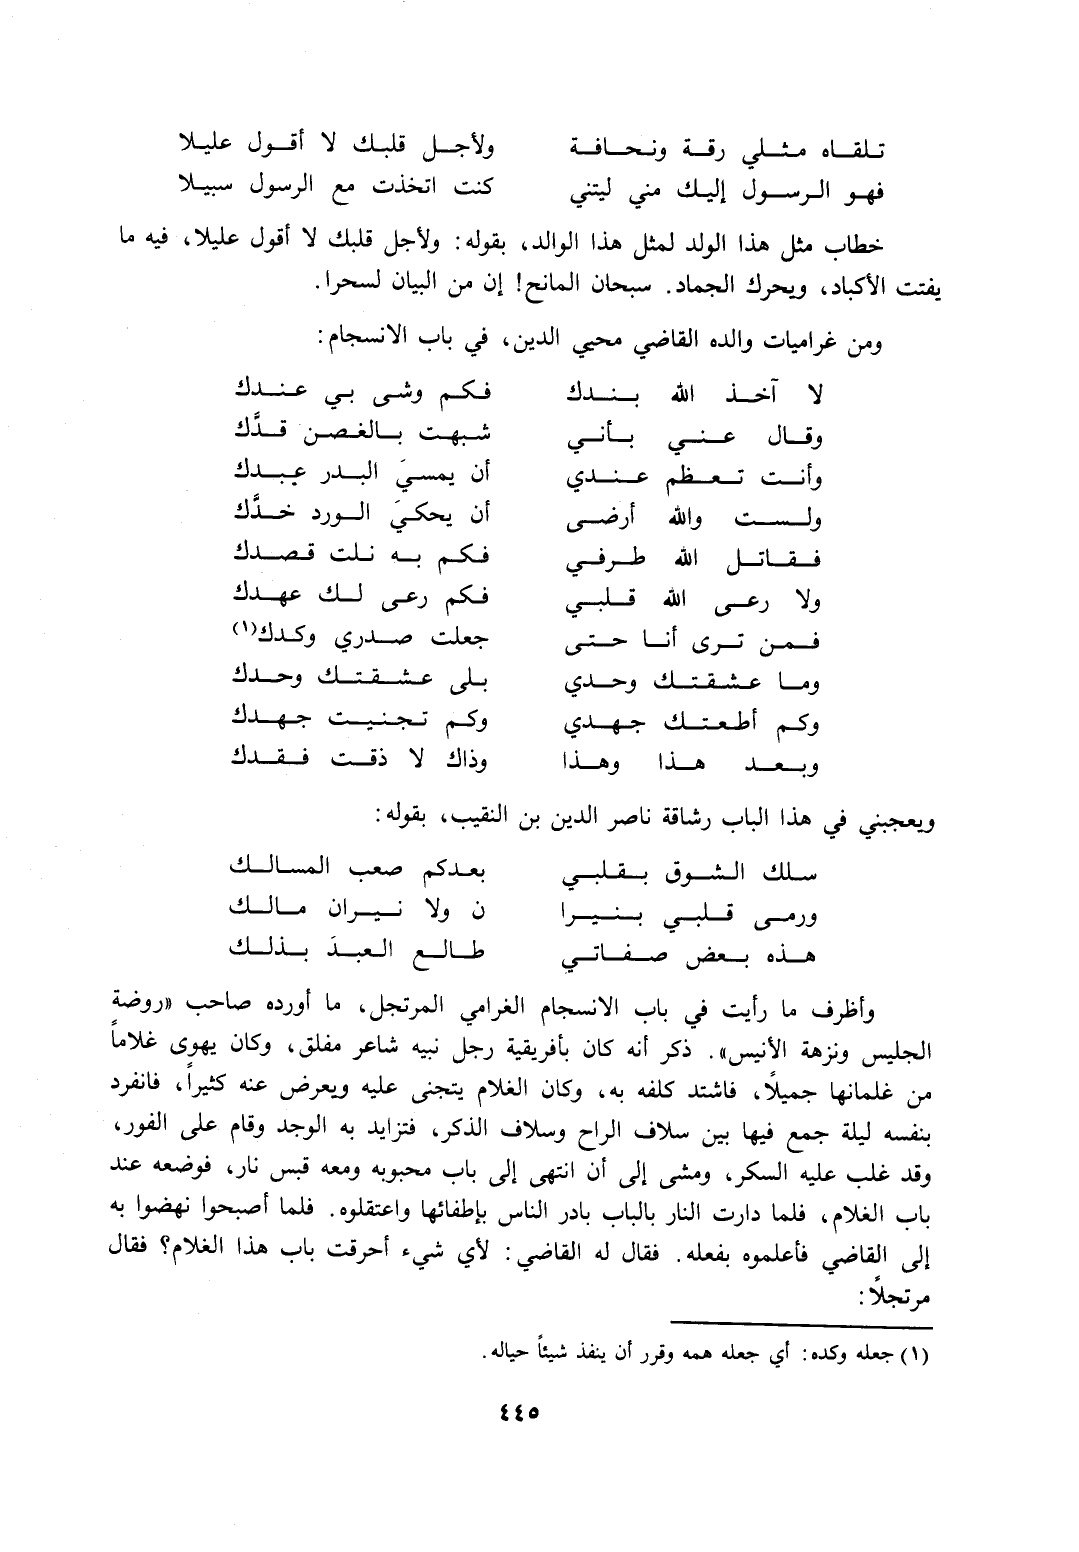 تلقاه مثلي رقة ونحافة ولأجل قلبك لا أقول عليلا
فهو الرسول إليك مني ليتني كنت اتخذت مع الرسول سبيلا
خطاب مثل هذا الولد لمثل هذا الوالد، بقوله: ولأجل قلبك لا أقول عليلا، فيه ما
يفتت الأكباد، ويحرك الجماد. سبحان المانح! إن من البيان لسحرا.
ومن غراميات والده القاضي محيي الدين، في باب الانسجام:
لا آخذ الله بندك فكم وشى بي عندك
وقال عني بأني شبهت بالغصن قدَّك
وأنت تعظم عندي أن يمسيَ البدر عبدك
ولست والله أرضى أن يحكيَ الورد خدَّك
فقاتل الله طرفي فكم به نلت قصدك
ولا رعى الله قلبي فكم رعى لك عهدك
فمن ترى أنا حتى جعلت صدري وكدك(١)
وما عشقتك وحدي بلى عشقتك وحدك
وكم أطعتك جهدي وكم تجنيت جهدك
وبعد هذا وهذا وذاك لا ذقت فقدك
ويعجبني في هذا الباب رشاقة ناصر الدين بن النقيب، بقوله:
سلك الشوق بقلبي بعدكم صعب المسالك
ورمى قلبي بنيرا ن ولا نيران مالك
هذه بعض صفاتي طالع العبدَ بذلك
وأظرف ما رأيت في باب الانسجام الغرامي المرتجل، ما أورده صاحب «روضة
الجليس ونزهة الأنيس». ذكر أنه كان بأفريقية رجل نبيه شاعر مفلق، وكان يهوى غلاماً
من غلمانها جميلاً، فاشتد كلفه به، وكان الغلام يتجنى عليه ويعرض عنه كثيراً، فانفرد
بنفسه ليلة جمع فيها بين سلاف الراح وسلاف الذكر، فتزايد به الوجد وقام على الفور،
وقد غلب عليه السكر، ومشى إلى أن انتهى إلى باب محبوبه ومعه قبس نار، فوضعه عند
باب الغلام، فلما دارت النار بالباب بادر الناس بإطفائها واعتقلوه. فلما أصبحوا نهضوا به
إلى القاضي فأعلموه بفعله. فقال له القاضي: لأي شيء أحرقت باب هذا الغلام؟ فقال
مرتجلاً:
(١) جعله وكده: أي جعله همه وقرر أن ينفذ شيئاً حياله.
٤٤٥